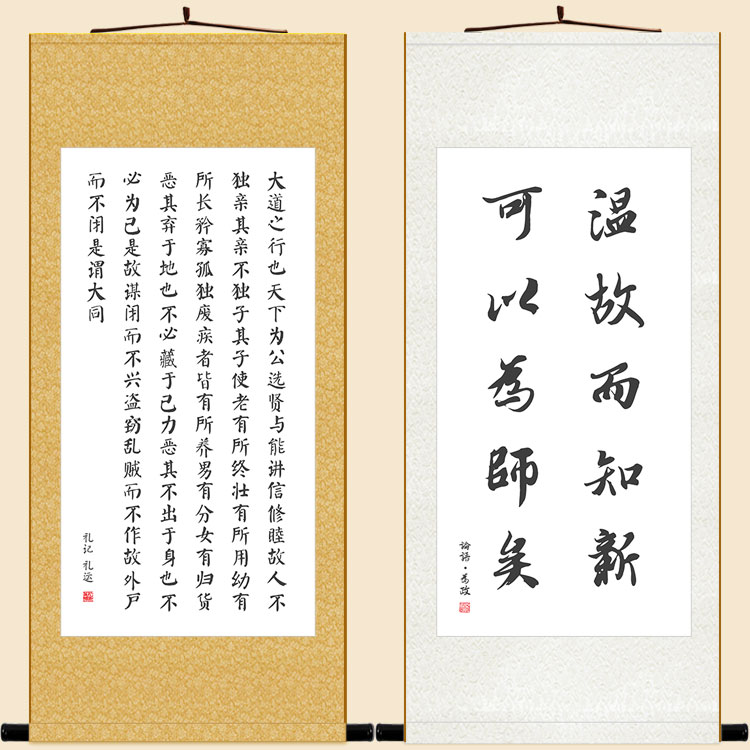 大道之行也天下为公选贤与能讲信修睦故人不
独亲其亲不独子其子使老有所终壮有所用幼有
所长矜寡孤独废疾者皆有所养男有分女有归货
恶其弃于地也不必藏于己力恶其不出于身也不
必为己是故谋闭而不兴盗窃乱贼而不作故外户
而不闭是谓大同
礼记 礼运
温故而知新
可以為師矣
論語·為政